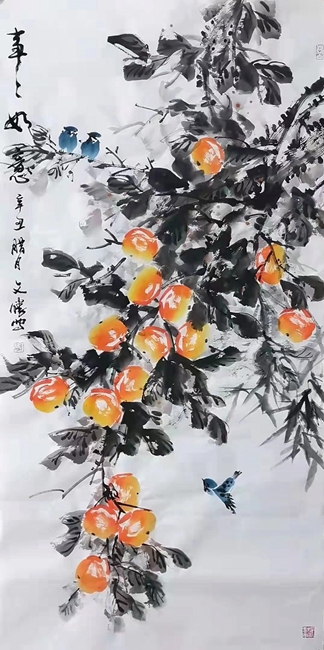 事〻如意
辛丑腊月文胜写